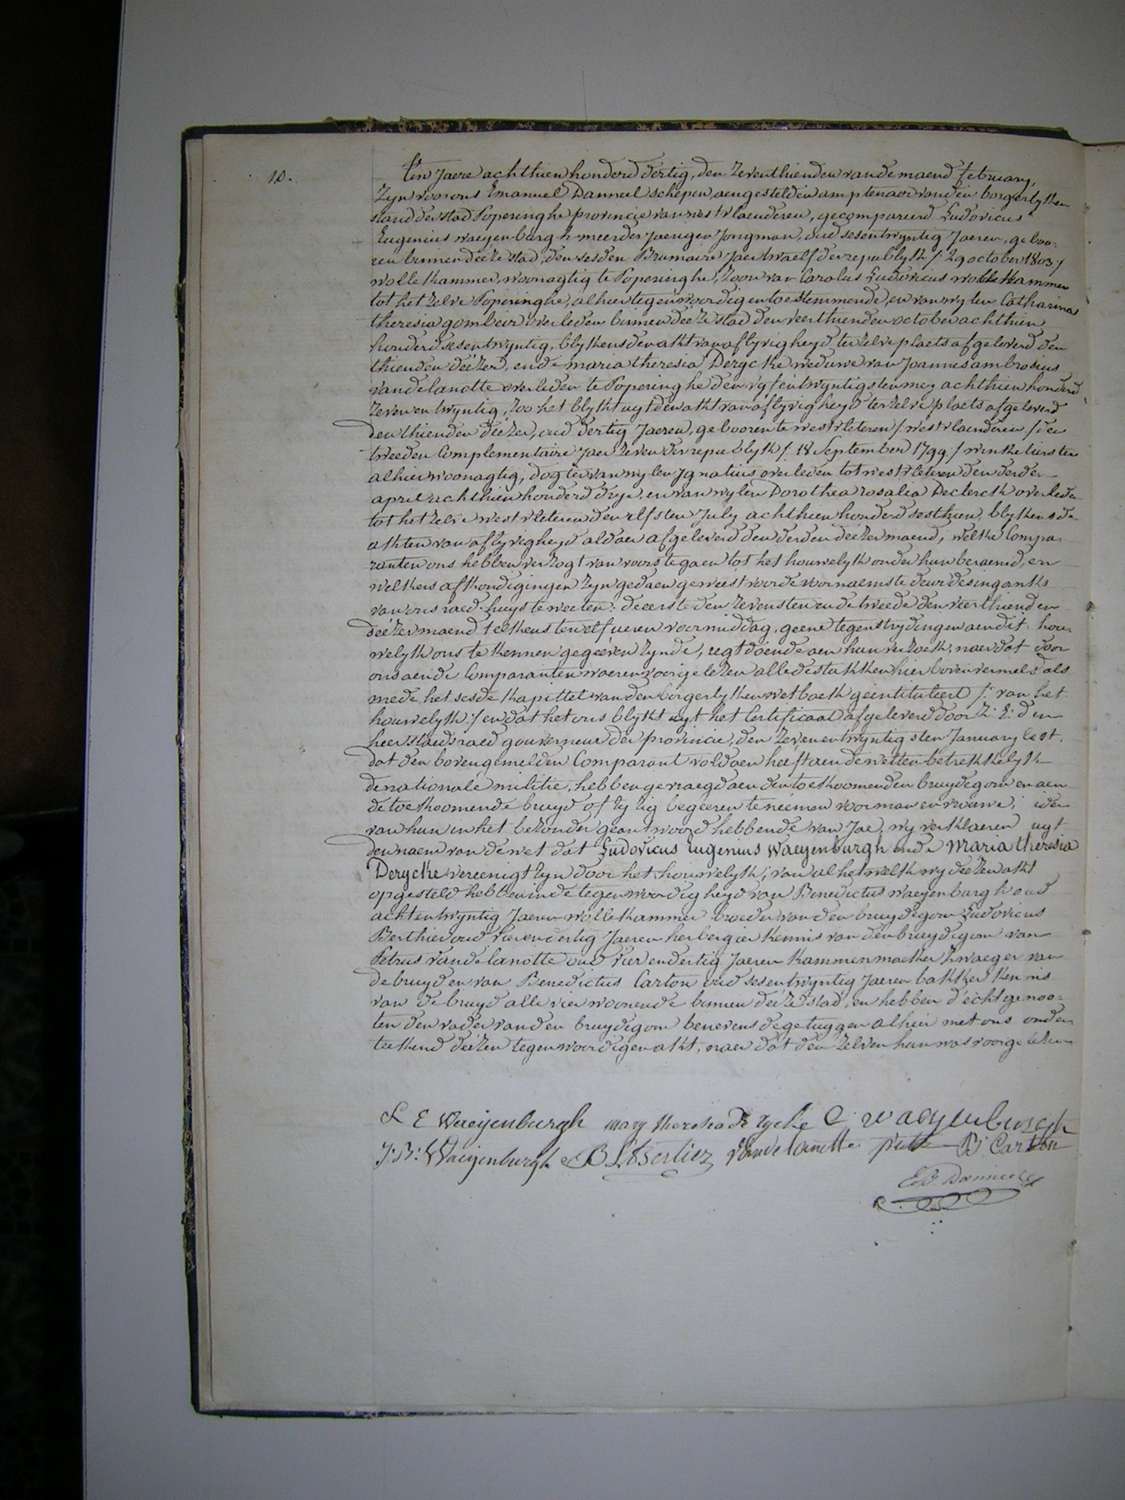 10.
Ten Jaere achthien honderd dertig, den zeventhienden van de maend february,
zyn voor ons Emanuel Danneel schepen, aengestelden amptenaer van den borgerlyken
stand der stad Poperinghe provincie van west vlaenderen, gecompareerd Ludovicus
Eugenius waeyenburgh meerderjaerigen jongman, oud sesentwyntig Jaeren, geboo-
ren binnen deeze stad, den sesden Brumaire Jaer twaelf der republyk / 29 october 1803 /
wolle kammer, woonagtig te Poperinghe, zoon van Carolus Ludovicus wolle kammer
tot het zelve Poperinghe, alhier tegenwoordig en toestemmende, en van wylen Catharina
theresia gombeir overleden binnen deeze stad den veerthienden october achthien
honderd sesentwyntig, blykens den akt van aflyvigheyd ter zelve plaets afgeleverd den
thienden deezer, ende maria theresia Derycke weduwe van Joannes ambrosius
vandelanotte overleden te Poperinghe den vyfentwyntigsten mey achthien honderd
zevenentwyntig, zoo het blykt uyt den akt van aflyvigheyd ter zelve plaets afgeleverd
den thienden deezer, oud dertig Jaeren, gebooren te westvleteren / westvlaenderen / den
tweeden Complementaire Jaer zeven der republyk / 18 September 1799 / winkelierster
alhier woonagtig, dogter van wylen Ignatius overleden tot westvleteren den derden
april achthien honderd drye, en van wylen Dorothea rosalia Declerck overleden
tot het zelve westvleteren den elfsten July achthien honderd sesthien, blykens de
akten van aflyvigheyd aldaer afgeleverd den derden deezer maend, welke Compa-
ranten ons hebben verzogt van voorts te gaen tot het houwelyk onder hun beraemd, en
welkers afkondigingen zyn gedaen geweest voor de voornaemste deur des ingangks
van ons raed-huys te weeten: de eerste den zevensten en de tweede den veerthienden
deezer maend telkens ten elf ueren voormiddag, geene tegenstrydingen aen dit hou-
welyk ons te kennen gegeeven zynde, regt doende aen hun verzoek, naer dat door
ons aen de Comparanten waeren voorgelezen alle de stukken hier boven vermeld als
mede het sesde kapittel van den borgerlyken wetboek geintituleert /: van het
houwelyk:/ en dat het ons blykt uyt het Certificaat afgeleverd door Z: E: den
heer staedsraed gouverneur der provincie, den zevenentwyntigsten January lest,
dat den bovengemelden Comparant voldaen heeft aen de wetten betrekkelyk
de nationale militie, hebben gevraegd aen den toekoomenden bruydegom en aen
de toekoomende bruyd of zy zig begeeren te neemen voor man en vrouwe; ider
van hun in het bezonder geantwoord hebbende van Jae, wy verklaeren uyt
den naem van de wet dat Ludovicus Eugenius Waeyenburgh ende Maria theresia
Derycke vereenigt zyn door het houwelyk; van al het welk wy deezen akt
opgesteld hebben in de tegenwoordigheyd van Benedictus waeyenburgh oud
achtentwyntig Jaeren wolle kammer broeder van den bruydegom Ludovicus
Berthier oud vierendertig Jaeren herbergier kennis van den bruydegom van
Petrus vandelanotte oud vierendertig Jaeren kammenmaeker zwaeger van
de bruyd en van Benedictus Carton oud sesentwyntig Jaeren bakker kennis
van de bruyd alle vier woonende binnen deeze stad, en hebben d'echtgenoo-
ten den vader van den bruydegom benevens de getuygen alhier met ons onder-
teekend deezen tegenwoordigen akt, naer dat den zelven hun was voorgelezen
L E Waeijenburgh mary theresia De rycke C waeyenburgh
J: B: Waeijenburgh B L Berlier vandelanotte B Carton
Ed. Danneel